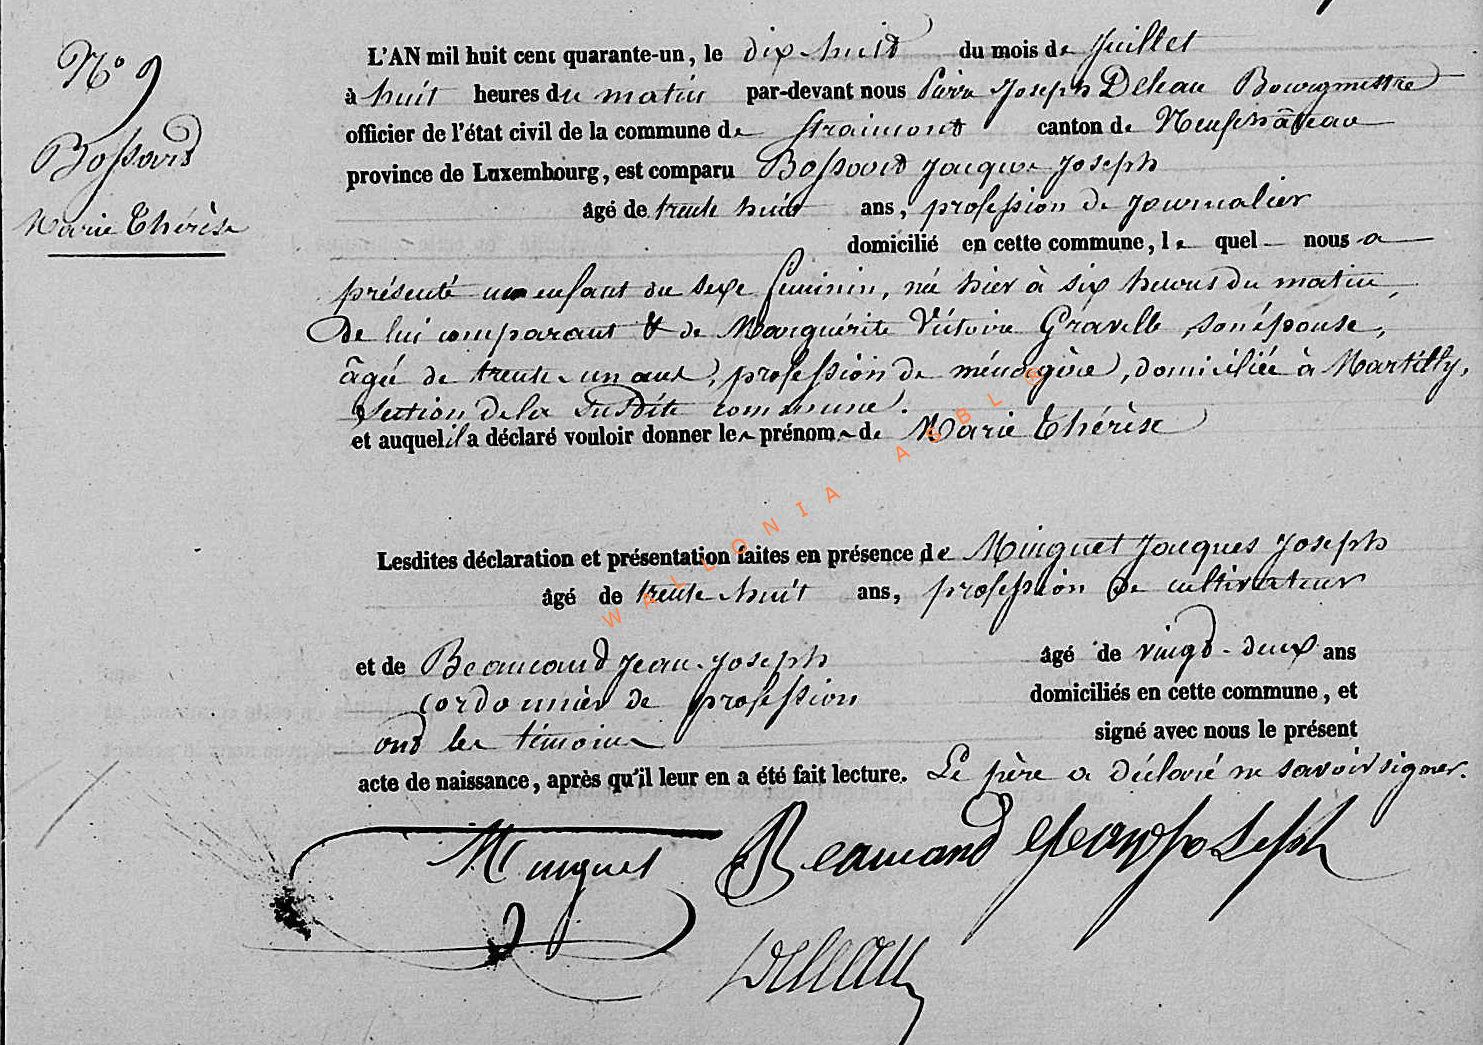 N° 9
Bossard
Marie Thérèse
L'AN mil huit cent quarante-un, le dix-huit du mois de Juillet
à huit heures du matin par-devant nous Pierre Joseph Deleau Bourgmestre
officier de l'état civil de la commune de Straimont canton de Neufchâteau
province de Luxembourg, est comparu Bossard Jacques Joseph
âgé de trente huit ans, profession de Journalier
domicilié en cette commune, le quel nous a
présenté un enfant du sexe féminin, né hier à six heures du matin,
De lui comparant & de Marguérite Victoire Graville, son épouse,
âgée de trente-un ans, profession de ménagère, domiciliée à Martilly,
section de la susdite commune.
et auquel il a déclaré vouloir donner les prénoms de Marie Thérèse
Lesdites déclaration et présentation faites en présence de Minguet Jacques Joseph
âgé de trente huit ans, profession de cultivateur
et de Beaumand Jean-Joseph âgé de vingt-deux ans
cordonnier de profession domiciliés en cette commune, et
ont les témoins signé avec nous le présent
acte de naissance, après qu'il leur en a été fait lecture. Le père a déclaré ne savoir signer.
Minguet Beamand Jean joseph
Deleau
WALLONIA ASBL ®